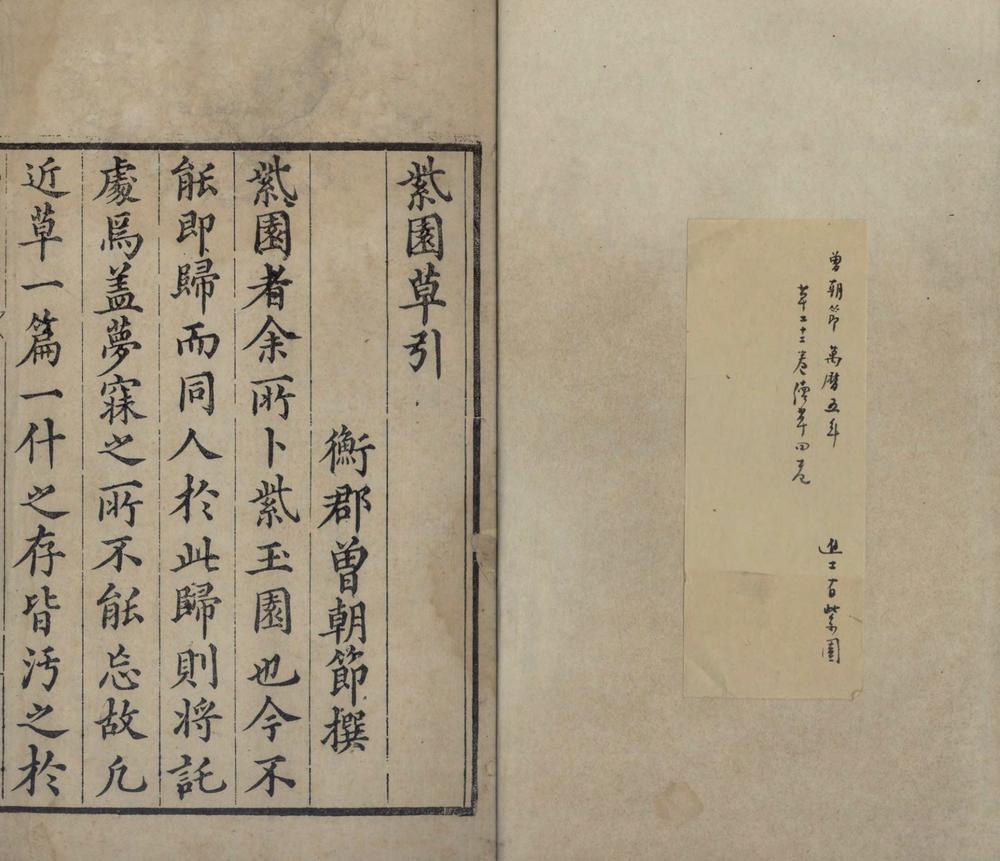 曾朝節 萬曆五年 進士有紫園
草二十二卷續草四卷
紫園草引
衡郡曾朝節撰
紫園者余所卜紫玉園也今不
能即歸而同人於此歸則将託
處焉盖夢寐之所不能忘故凢
近草一篇一什之存皆汚之於